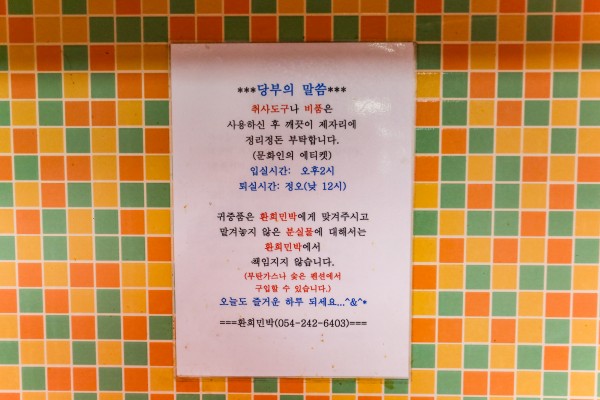 ***당부의 말씀***
취사도구나 비품은
사용하신 후 깨끗이 제자리에
정리정돈 부탁합니다.
(문화인의 에티켓)
입실시간: 오후2시
퇴실시간: 정오(낮 12시)
귀중품은 환희민박에게 맞겨주시고
맡겨놓지 않은 분실물에 대해서는
환희민박에서
책임지지 않습니다.
(부탄가스나 숯은 펜션에서
구입할 수 있습니다.)
오늘도 즐거운 하루 되세요...^&^*
===환희민박(054-242-6403)===